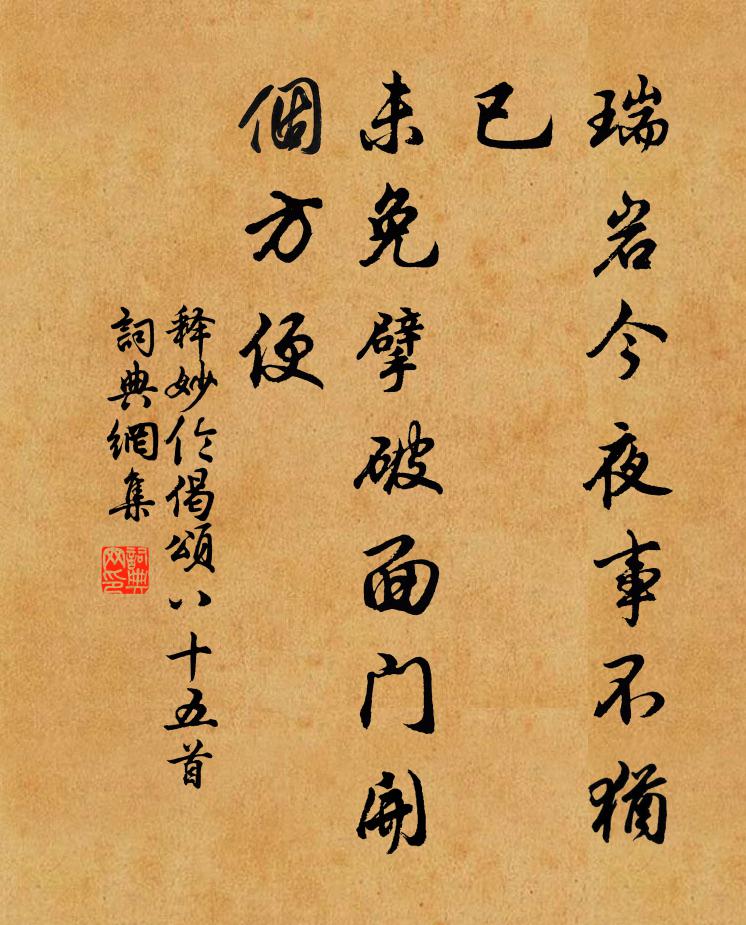 瑞岩今夜事不犹
已
未免擘破面门開
個方便
释妙伦偈頌八十五首
詞典網集
詞典网印